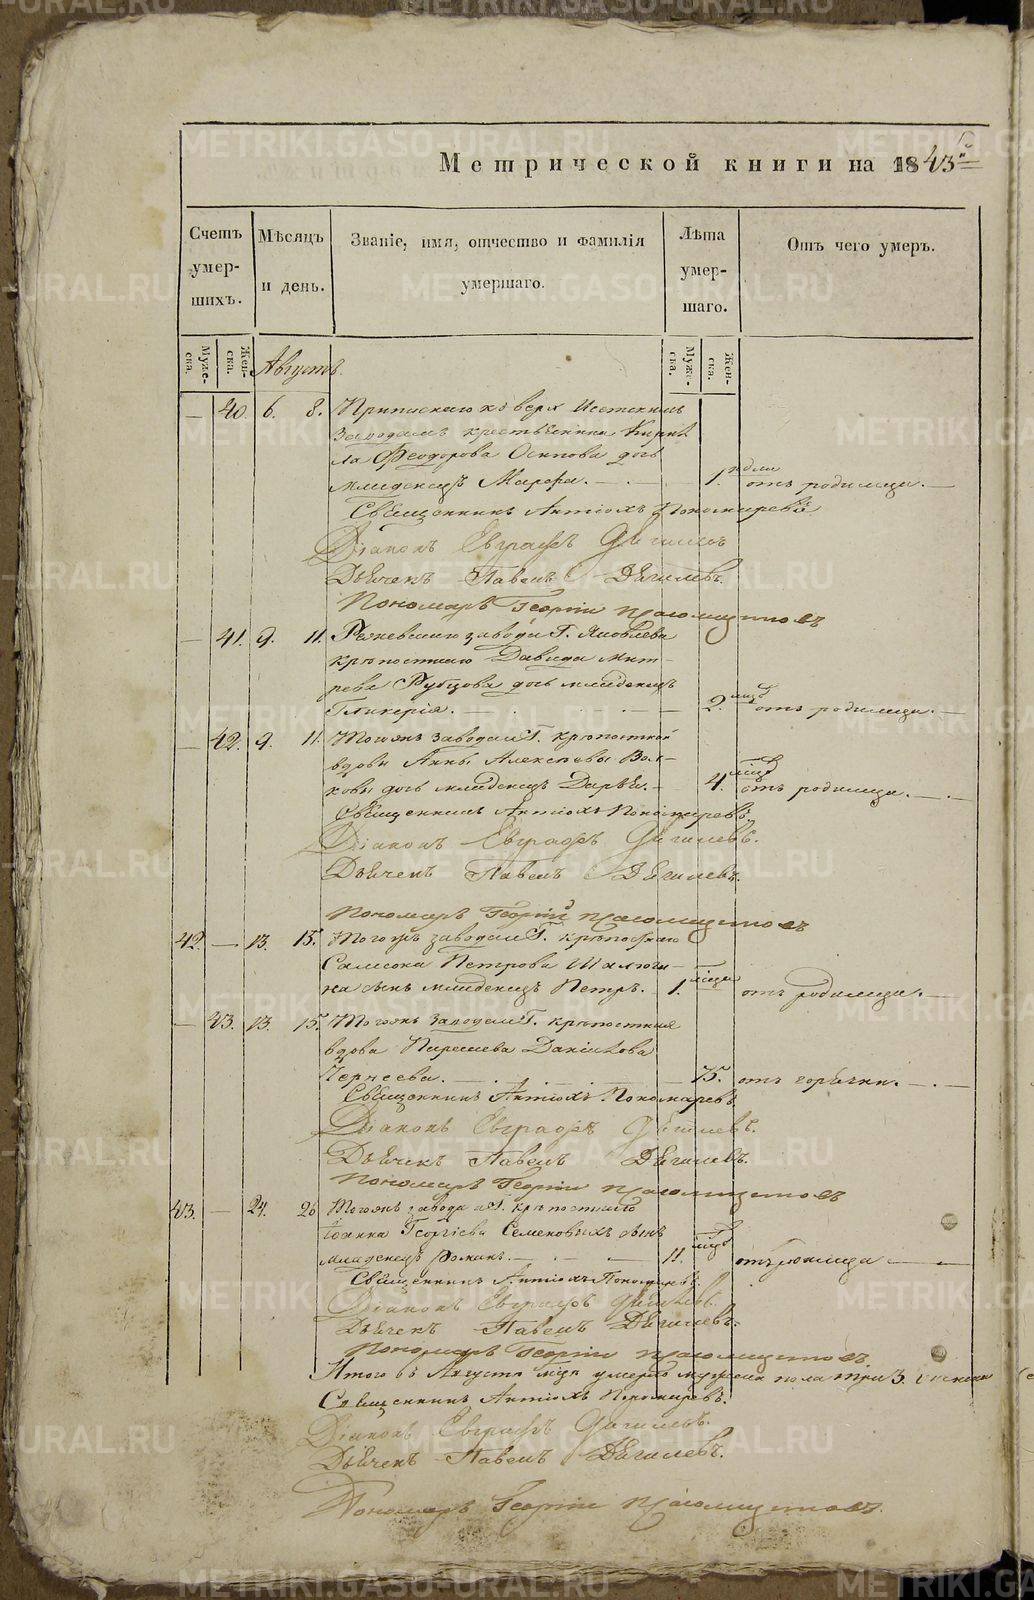 Метрической книги на 1843й
Счетъ умершихъ.
Мѣсяцъ и день.
Званіе, имя, отчество и фамилія умершаго.
Лѣта умершаго.
Отъ чего умеръ.
Мужеска.
Женска.
Мужеска.
Женска.
Августъ.
— 40. 6. 8. Приписнаго къ верхъ Исетскимъ
заводамъ крестьянина Кирил
ла Феодорова Осипова дочь
младенецъ Марфа. — 1. отъ родимца. —
Священникъ Антіохъ Пономаревъ
Діаконъ Евграфъ Дягилевъ
Дьячекъ Павелъ Дягилевъ.
Пономарь Георгій
— 41. 9. 11. Режевскаго завода Г. Яковлева
крѣпостнаго Давида Мит-
рева Рубцова дочь младенецъ
Гликерія. — 2. мцъ отъ родимца. —
— 42. 9. 11. Тогожъ завода Г. крѣпостной
вдовы Анны Алексѣевы Вол-
ковы дочь младенецъ Дарья. — 4. мцъ отъ родимца. —
Священникъ Антіохъ Пономаревъ.
Діаконъ Евграфъ Дягилевъ.
Дьячекъ Павелъ Дягилевъ.
Пономарь Георгій
42. — 13. 15. Тогожъ завода Г. крѣпостнаго
Самсона Петрова
на сынъ младенецъ Петръ. — 1. отъ родимца. —
— 43. 13. 15. Тогожъ завода Г. крѣпостная
вдова Данилова
— 75. отъ горячки. —
Священникъ Антіохъ Пономаревъ.
Діаконъ Евграфъ Дягилевъ.
Дьячекъ Павелъ Дягилевъ.
Пономарь Георгій
43. — 24. 26 Тогожъ завода Г. крѣпостнаго
Іоанна Георгіева Семеновыхъ сынъ
младенецъ Романъ. — 11. мцъ отъ родимца —
Священникъ Антіохъ Пономаревъ.
Діаконъ Евграфъ Дягилевъ.
Дьячекъ Павелъ Дягилевъ.
Пономарь Георгій
Итого въ Августѣ мцѣ умерло мужеска пола три 3.
Священникъ Антіохъ Пономаревъ.
Діаконъ Евграфъ Дягилевъ.
Дьячекъ Павелъ Дягилевъ.
Пономарь Георгій
METRIKI.GASO-URAL.RU